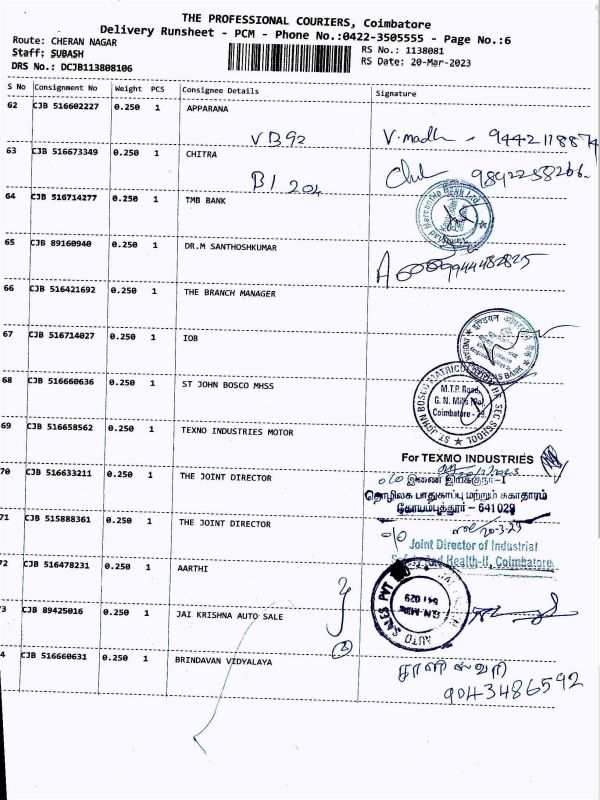 THE PROFESSIONAL COURIERS, Coimbatore
Delivery Runsheet - PCM - Phone No.:0422-3505555 - Page No.:6
Route: CHERAN NAGAR
Staff: SUBASH
DRS No.: DCJB113808106
RS No.: 1138081
RS Date: 20-Mar-2023
S No Consignment No Weight PCS Consignee Details Signature
62 CJB 516602227 0.250 1 APPARANA
VB92 V.madh - 9442118874
63 CJB 516673349 0.250 1 CHITRA
B1 204 9842258266
64 CJB 516714277 0.250 1 TMB BANK
65 CJB 89160940 0.250 1 DR.M SANTHOSHKUMAR
9944482825
66 CJB 516421692 0.250 1 THE BRANCH MANAGER
67 CJB 516714027 0.250 1 IOB
68 CJB 516660636 0.250 1 ST JOHN BOSCO MHSS
ST JOHN BOSCO MATRICULATION HR SEC SCHOOL
M.T.P. Road,
G. N. Mills
Coimbatore -
69 CJB 516658562 0.250 1 TEXNO INDUSTRIES MOTOR
For TEXMO INDUSTRIES
70 CJB 516633211 0.250 1 THE JOINT DIRECTOR
இணை இயக்குநர்-I
தொழிலக பாதுகாப்பு மற்றும் சுகாதாரம்
கோயம்புத்தூர் - 641029
71 CJB 515888361 0.250 1 THE JOINT DIRECTOR
20-3-23
Joint Director of Industrial
Safety and Health-II, Coimbatore
72 CJB 516478231 0.250 1 AARTHI
73 CJB 89425016 1 JAI KRISHNA AUTO SALE
AUTO SALES PVT
641 029
74 CJB 516660631 0.250 1 BRINDAVAN VIDYALAYA
9043486592